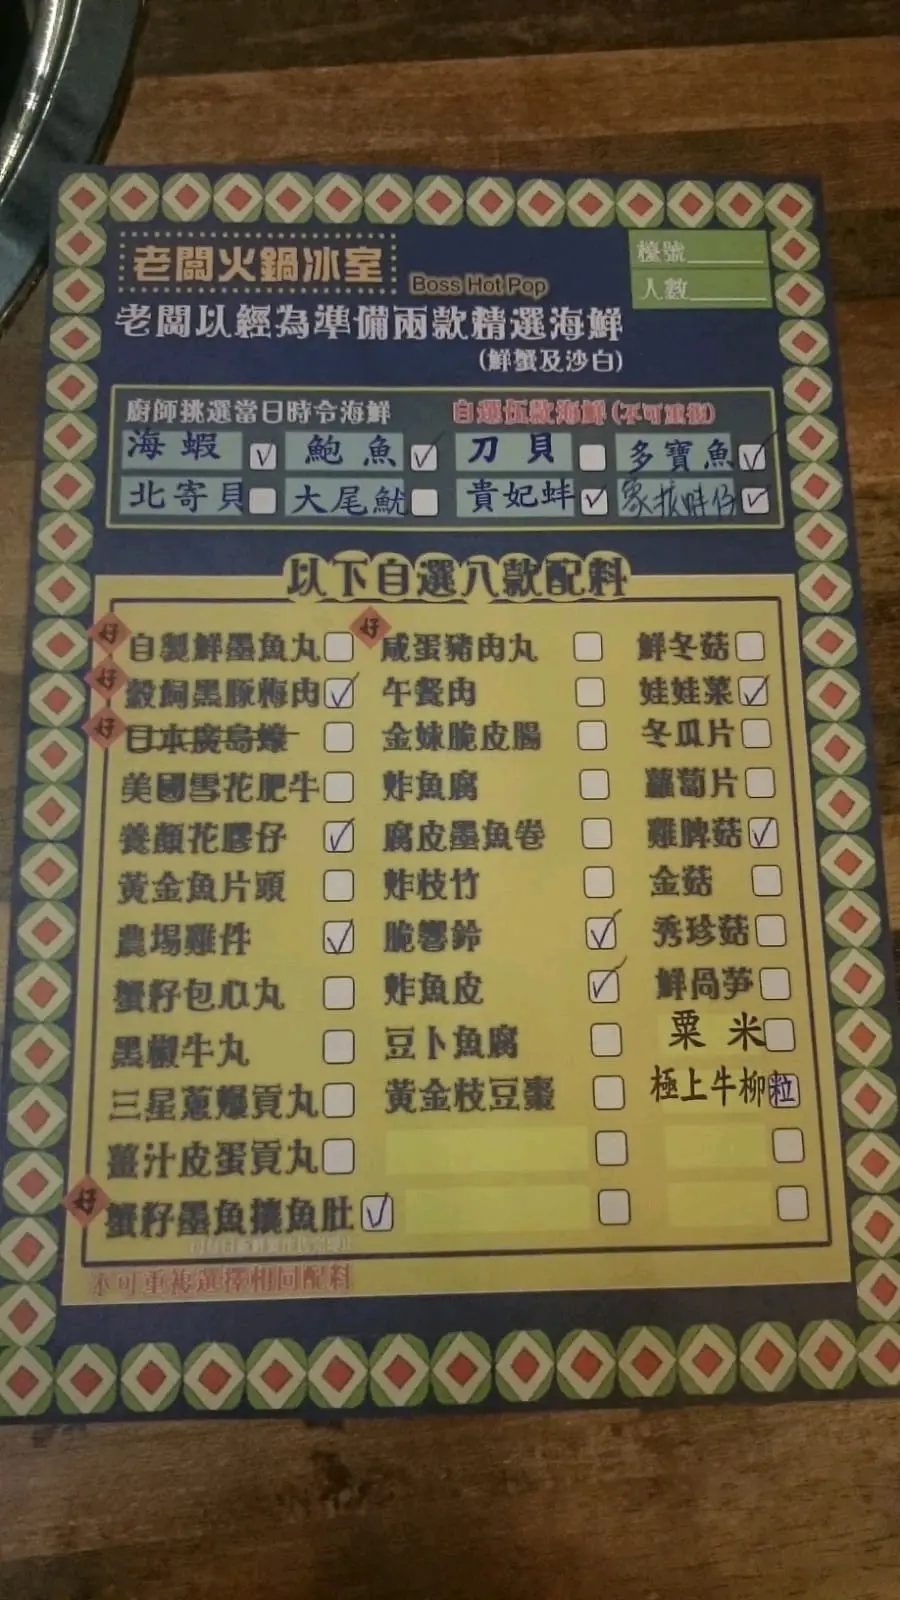 老闆火鍋冰室 Boss Hot Pop
檯號
人數
老闆以經為準備兩款精選海鮮
(鮮蟹及沙白)
廚師挑選當日時令海鮮 自選伍款海鮮(不可重複)
海蝦 鮑魚 刀貝 多寶魚
北寄貝 大尾魷 貴妃蚌 象拔蚌仔
以下自選八款配料
好 自製鮮墨魚丸 好 咸蛋豬肉丸 鮮冬菇
好 穀飼黑豚梅肉 午餐肉 娃娃菜
好 日本廣島蠔 金妹脆皮腸 冬瓜片
美國雪花肥牛 炸魚腐 蘿蔔片
養顏花膠仔 腐皮墨魚卷 雞脾菇
黃金魚片頭 炸枝竹 金菇
農場雞件 脆響鈴 秀珍菇
蟹籽包心丸 炸魚皮 鮮萵笋
黑椒牛丸 豆卜魚腐 粟米
三星蔥爆貢丸 黃金枝豆棗 極上牛柳粒
薑汁皮蛋貢丸
好 蟹籽墨魚釀魚肚
不可重複選擇相同配料